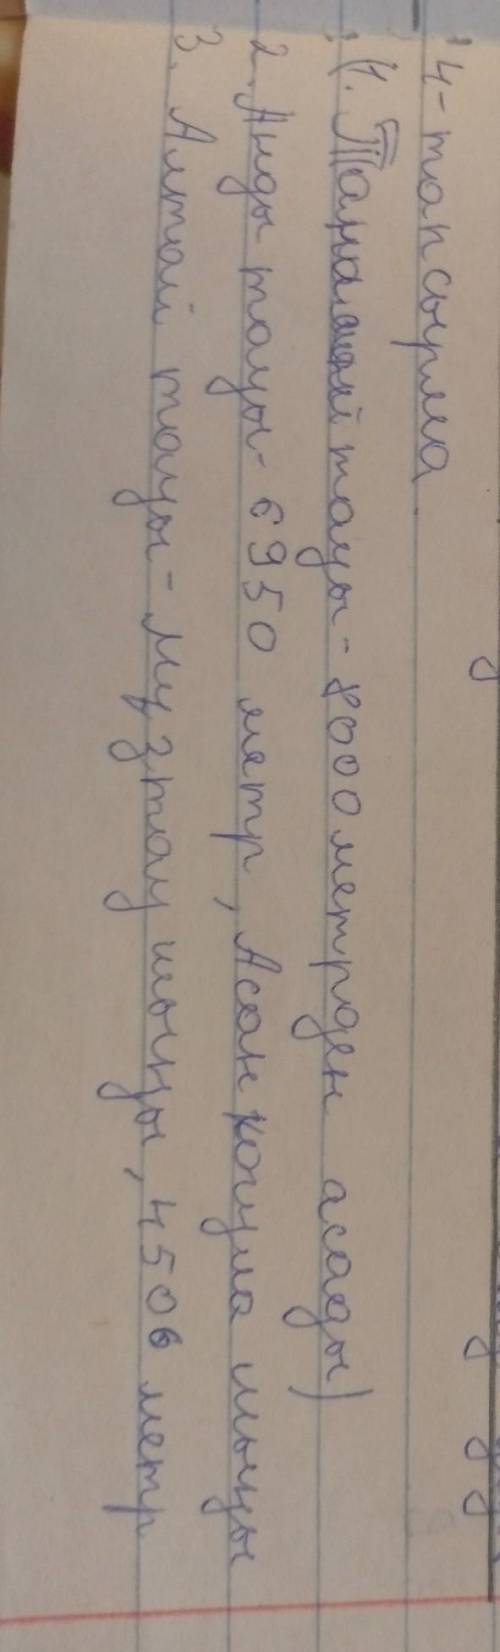 4-тапсырма
(1. тауы - 8000 метрден асады)
2. Анды тауы - 6950 метр, Асонкогума шыңы
3. Алтай тауы - Мұзтау шыңы, 4506 метр